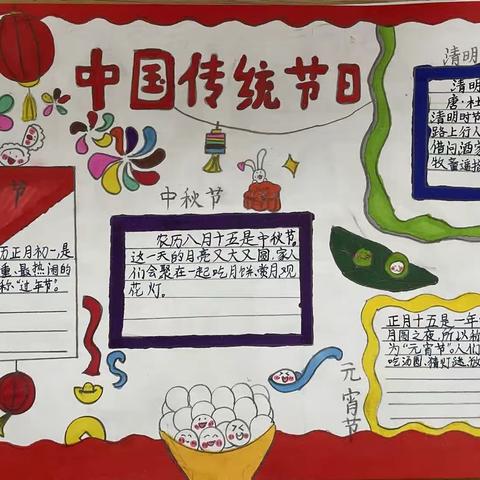 中国传统节日
节
历正月初一,是
重、最热闹的
称“过年节”。
中秋节
农历八月十五是中秋节,
这一天的月亮又大又圆,家人
们会聚在一起吃月饼、赏月观
花灯。
清明
清明
唐·杜
清明时节
路上行人
借问酒家
牧童遥指
正月十五是一年
月圆之夜,所以称
为“元宵节”。人们
吃汤圆、猜灯谜、放
元宵节